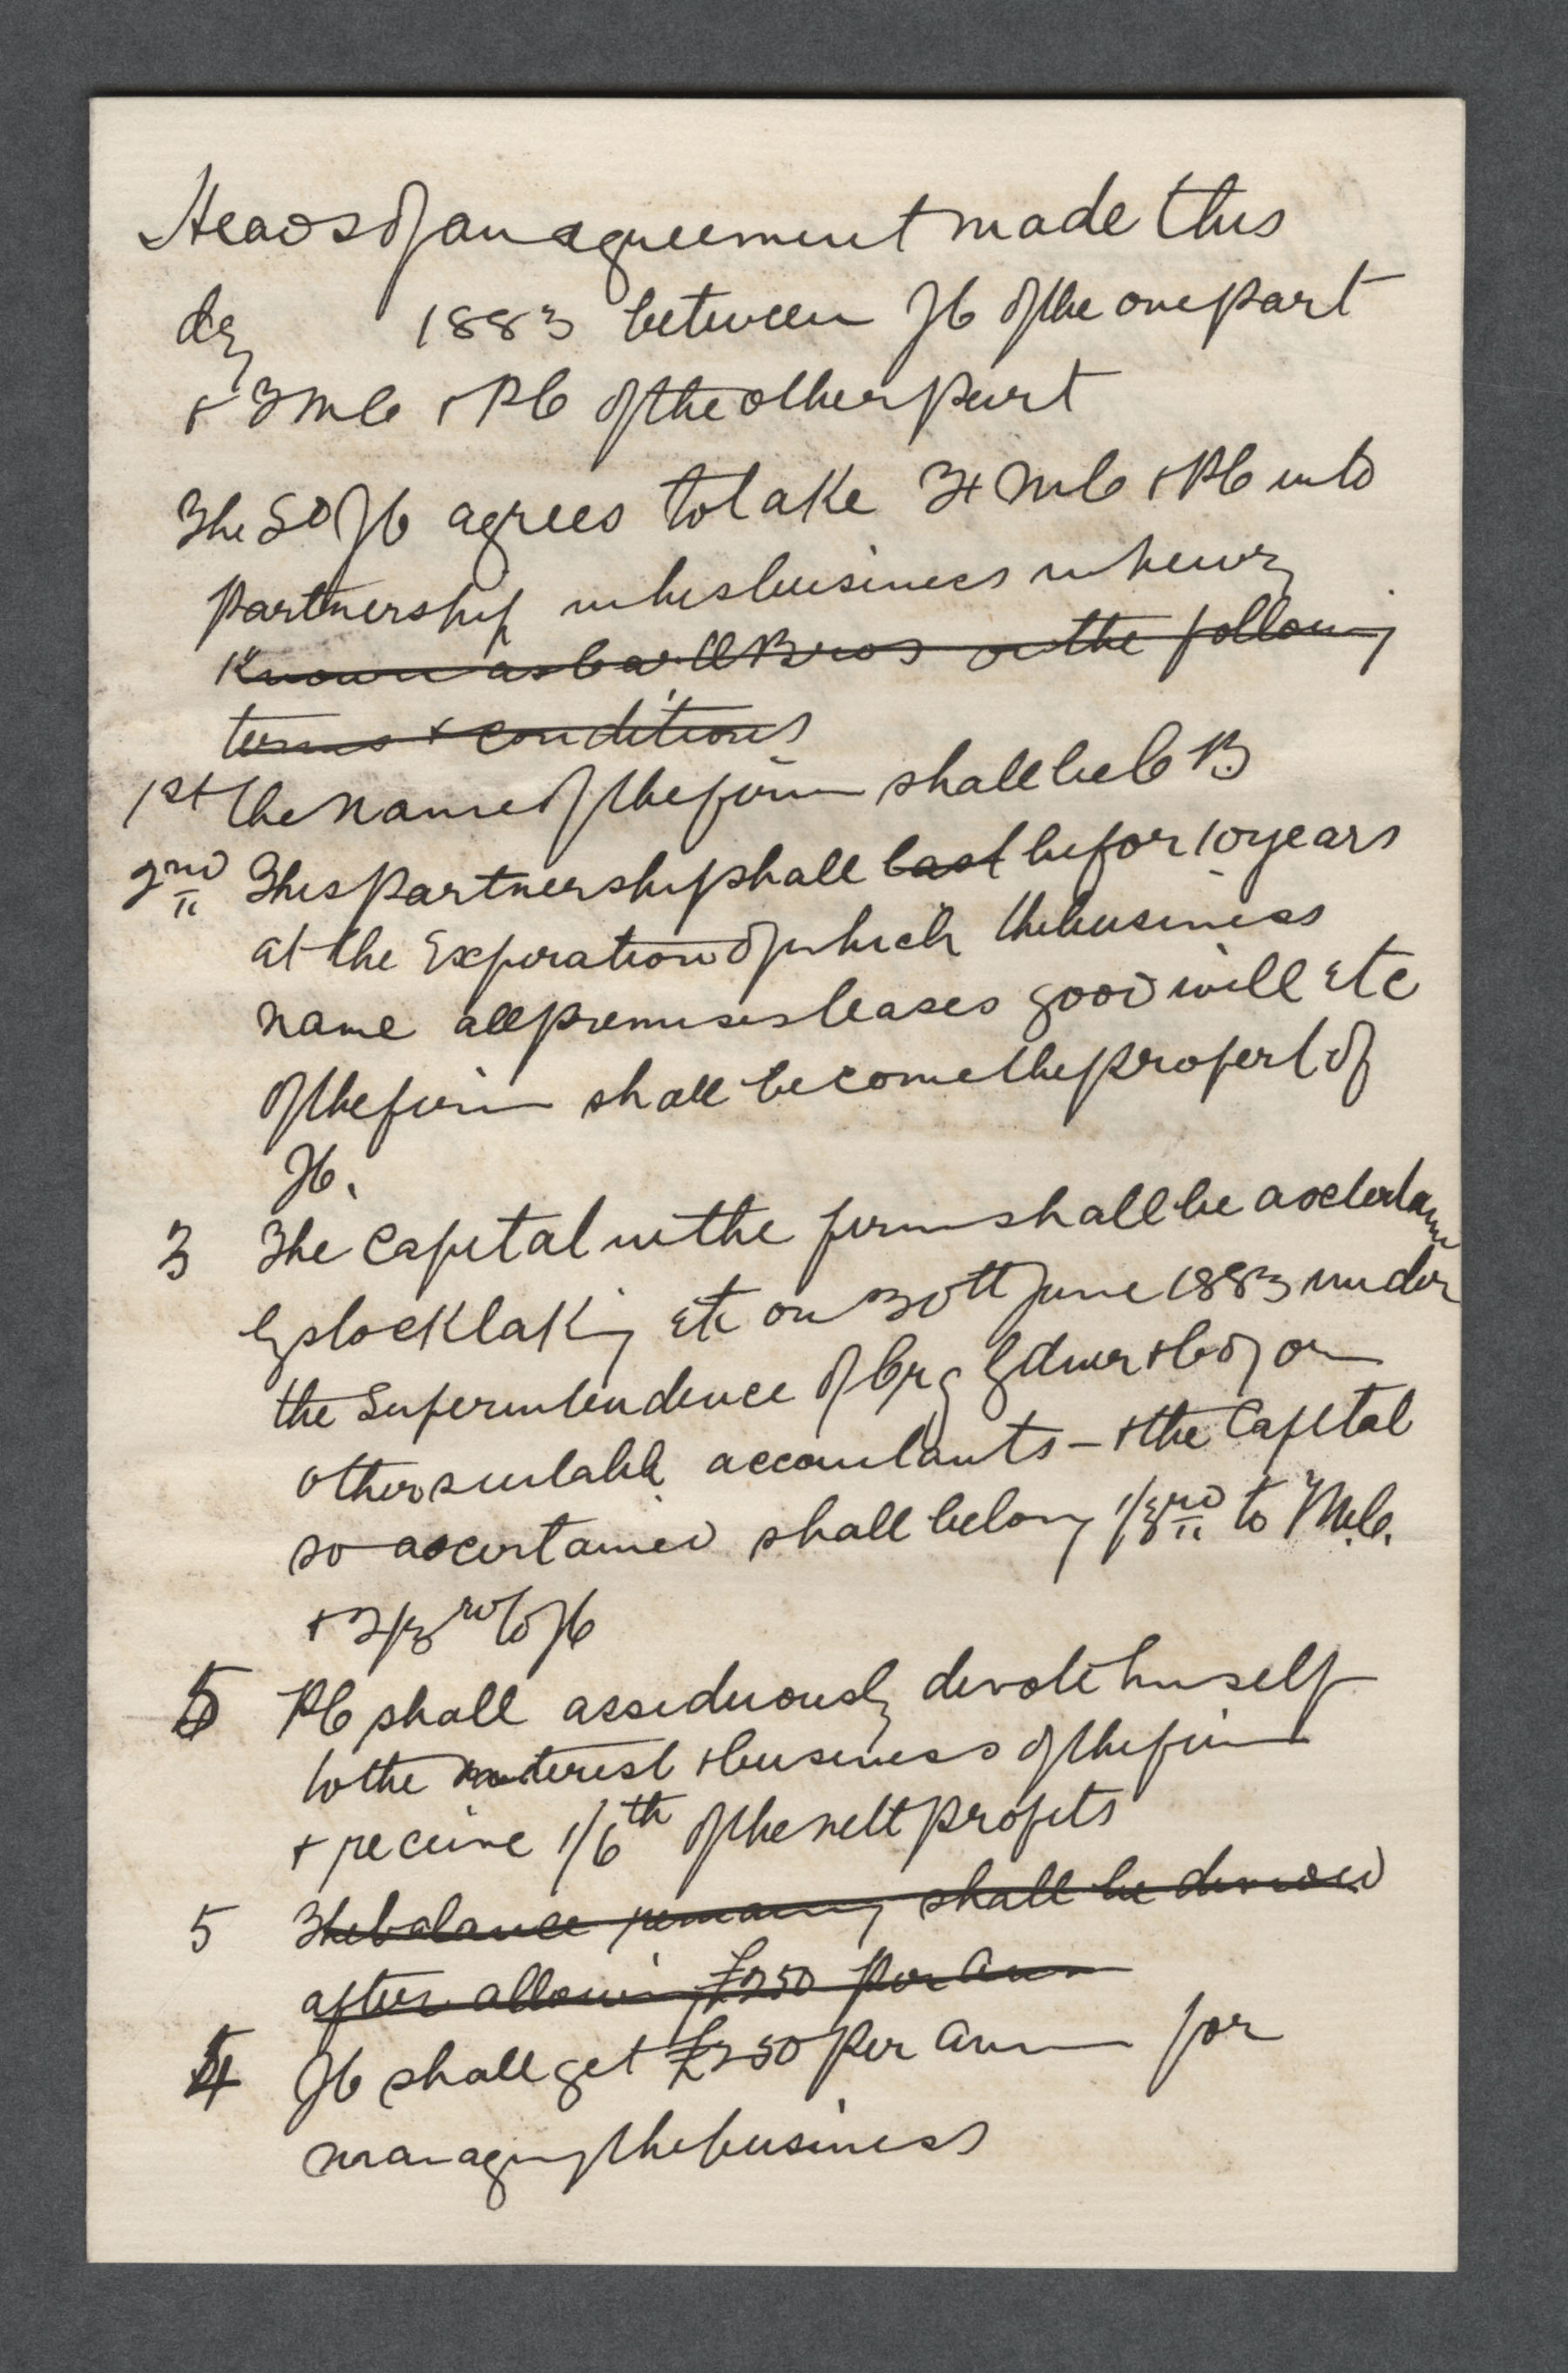 Heads of an agreement made this
day 1883 between JC of the one part
+ MC + PC of the other part
The Sd JC agrees to take MC + PC into
partnership in his business in
Known as Bros on the following
terms + conditions
1st the name of the firm shall be C B
2nd This partnership shall last be for 10 years
at the Expiration of which the business
name all premises leases good will etc
of the firm shall become the propert of
JC.
3 The Capital in the firm shall be ascertain
by stocktaking etc on 30th June 1883 under
the Superintendence of or
other suitable accountants – + the Capital
so ascertained shall belong 1/3rd to MC.
+ 2/3rd to JC
5 PC shall assiduously devote himself
to the interest + business of the firm
+ receive 1/6th of the nett profits
5 The balance remaining shall be divided
after allowing £250 per ann
4 JC shall get £250 per ann for
managing the business